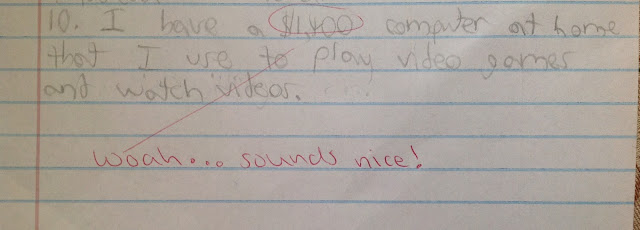 10. I have a $1,400 computer at home
that I use to play video games
and watch videos.
woah... sounds nice!